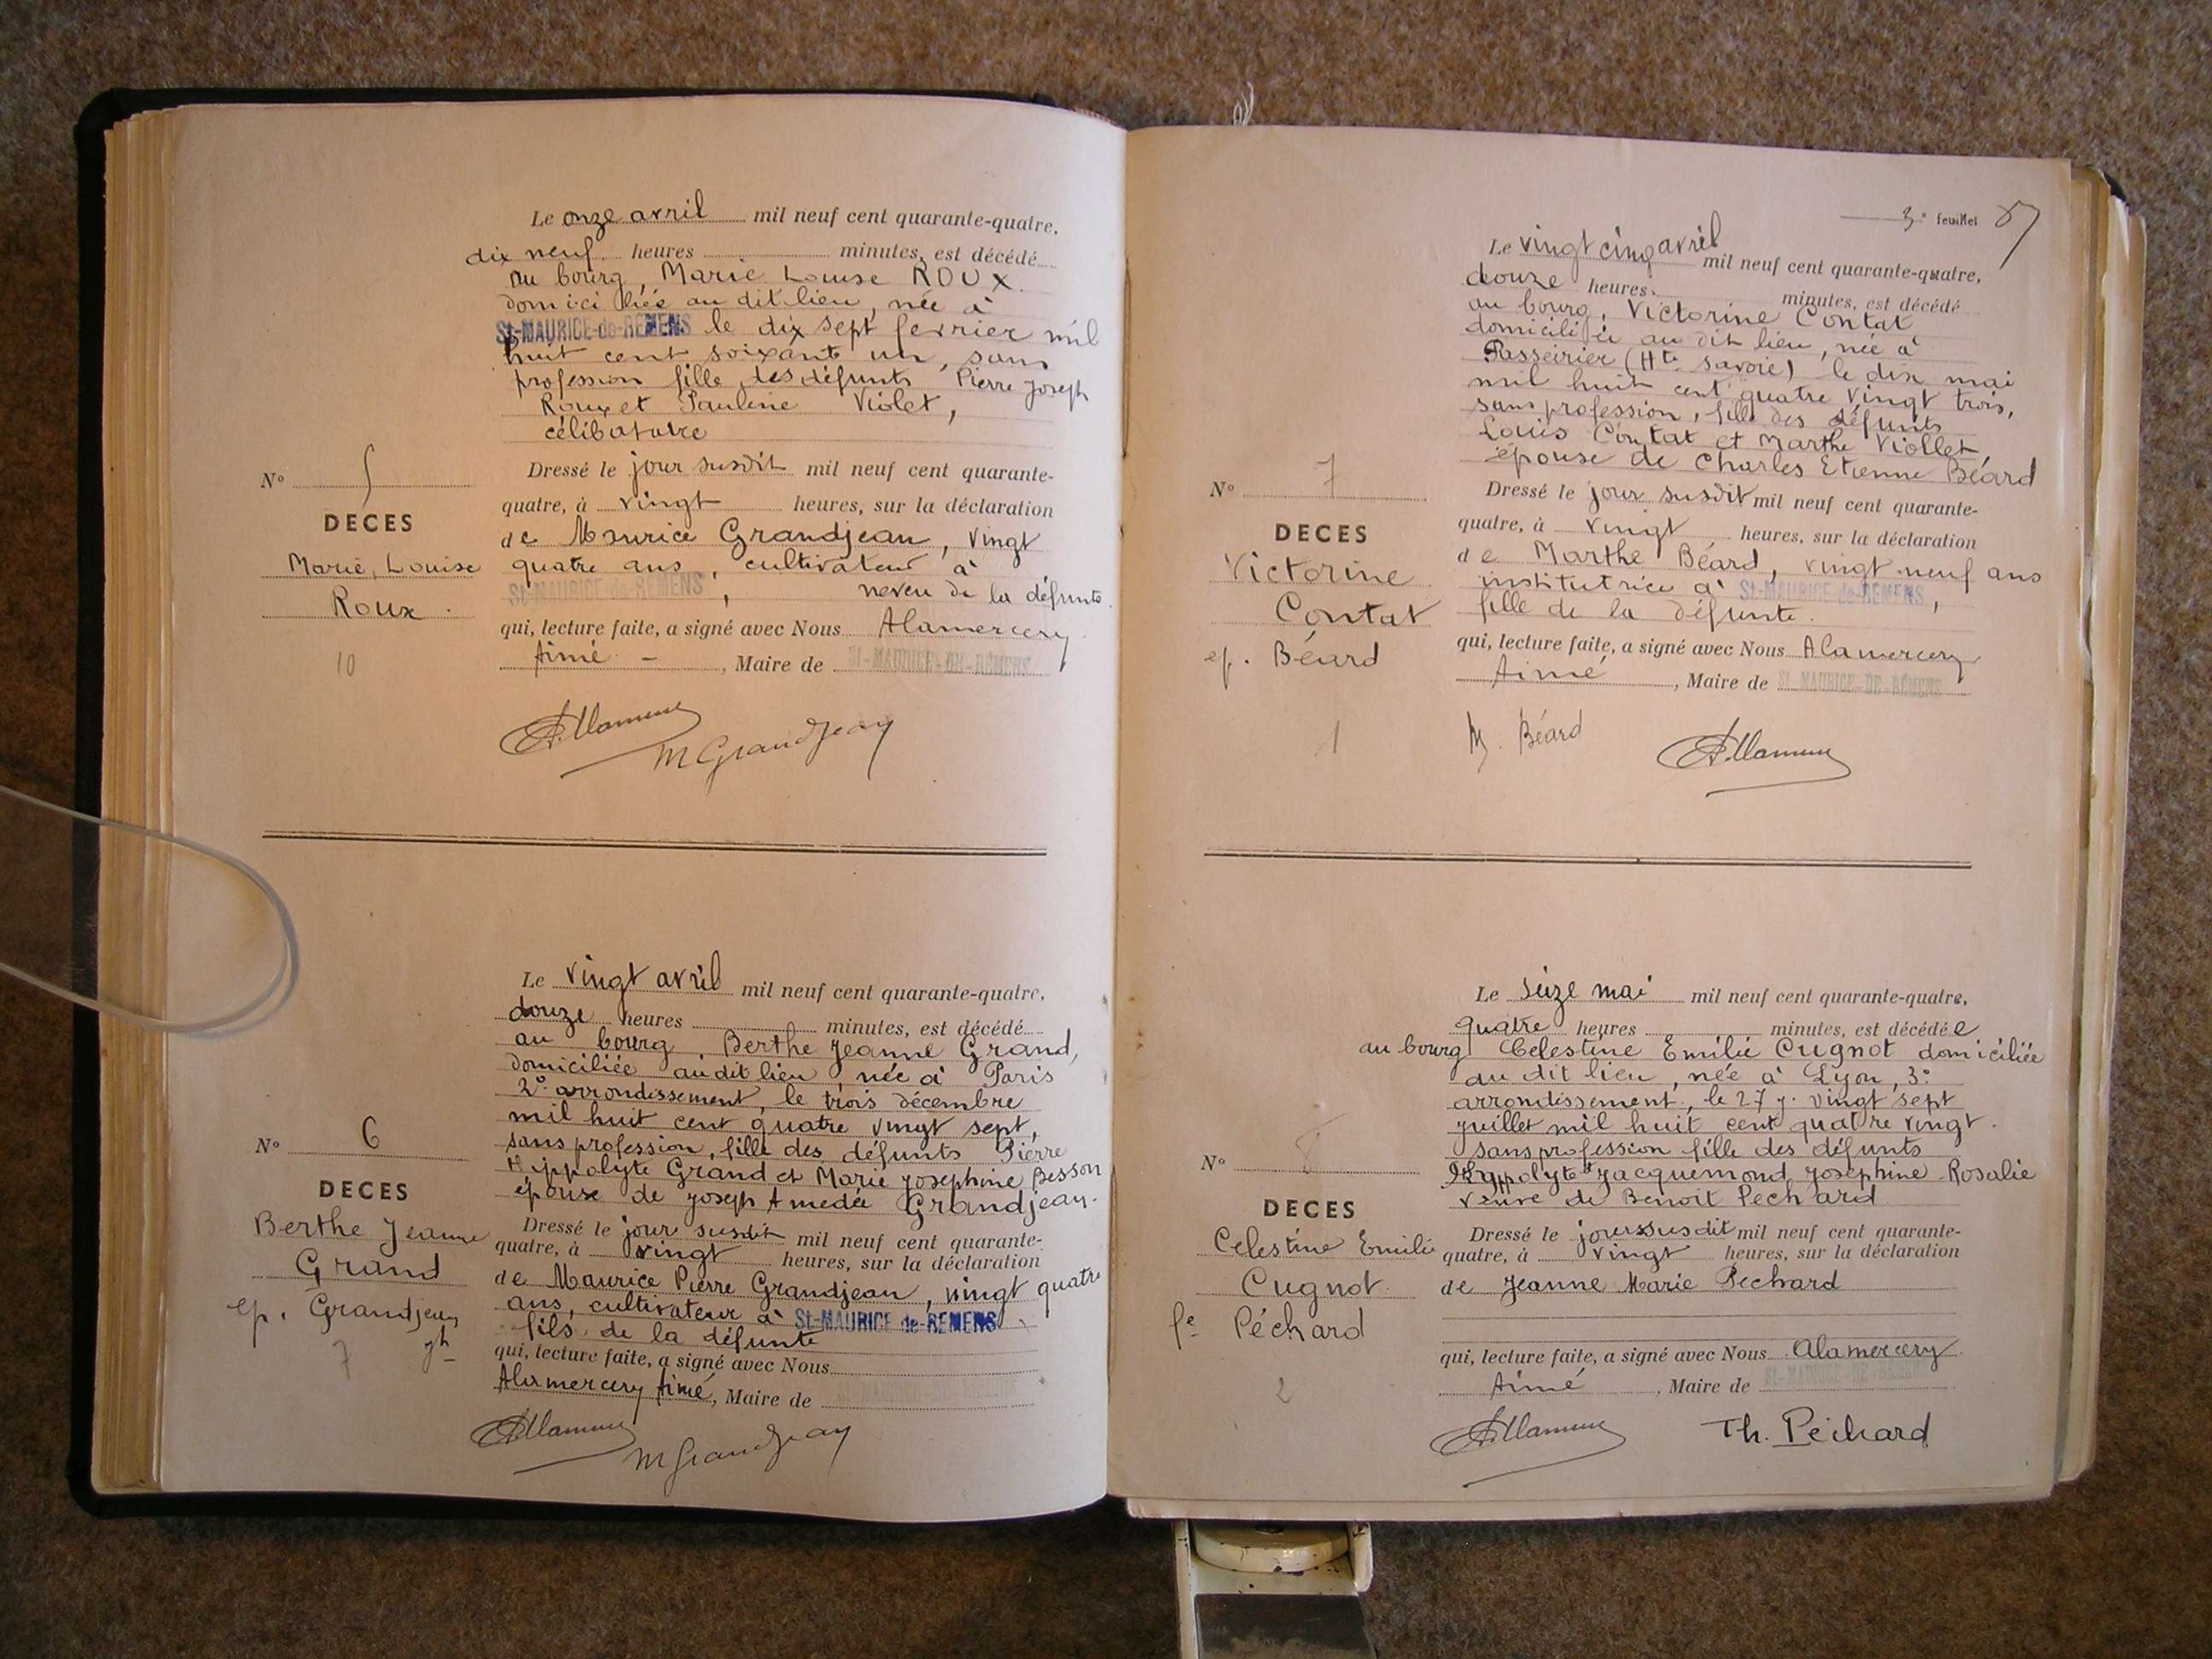 Le onze avril mil neuf cent quarante-quatre,
dix neuf heures minutes, est décédé
au bourg, Marie Louise ROUX.
domiciliée au dit lieu, née à
St-MAURICE-de-REMENS le dix sept fevrier mil
huit cent soixante un, sans
profession fille des défunts Pierre Joseph
Roux et Pauline Violet,
célibataire
N° 5
DECES
Marie, Louise
Roux.
10
Dressé le jour susdit mil neuf cent quarante-
quatre, à vingt heures, sur la déclaration
de Maurice Grandjean, vingt
quatre ans, cultivateur à
St-MAURICE-de-REMENS, neveu de la défunte.
qui, lecture faite, a signé avec Nous Alamercery
Aimé - , Maire de St-MAURICE-DE-RÉMENS
M Grandjean
Le vingt avril mil neuf cent quarante-quatre,
douze heures minutes, est décédé
au bourg, Berthe Jeanne Grand,
domiciliée au dit lieu, née à Paris
2e arrondissement, le trois décembre
mil huit cent quatre vingt sept,
sans profession, fille des défunts Pierre
Hippolyte Grand et Marie Josephine Besson
épouse de Joseph Amedée Grandjean.
N° 6
DECES
Berthe Jeanne
Grand
ep. Grandjean
jh
7
Dressé le jour susdit mil neuf cent quarante-
quatre, à vingt heures, sur la déclaration
de Maurice Pierre Grandjean, vingt quatre
ans, cultivateur à St-MAURICE de-REMENS
fils de la défunte
qui, lecture faite, a signé avec Nous
Alamercery Aimé, Maire de
M Grandjean
3e feuillet 87
Le vingt cinq avril mil neuf cent quarante-quatre,
douze heures minutes, est décédé
au bourg, Victorine Contat
domiciliée au dit lieu, née à
Passeirier (Hte Savoie) le dix mai
mil huit cent quatre vingt trois,
sans profession, fille des défunts
Louis Contat et Marthe Viollet,
épouse de Charles Etienne Béard
N° 7
DECES
Victorine
Contat
ep. Béard
1
Dressé le jour susdit mil neuf cent quarante-
quatre, à vingt heures, sur la déclaration
de Marthe Béard, vingt neuf ans
institutrice à St-MAURICE-de-REMENS,
fille de la défunte.
qui, lecture faite, a signé avec Nous Alamercery
Aimé , Maire de St-MAURICE-DE-RÉMENS
M. Béard
Le seize mai mil neuf cent quarante-quatre,
quatre heures minutes, est décédée
au bourg Celestine Emilie Cugnot domiciliée
au dit lieu, née à Lyon, 3e
arrondissement, le 27 j. vingt sept
juillet mil huit cent quatre vingt.
sans profession fille des défunts
Hyppolyte et Jacquemond Josephine Rosalie
veuve de Benoit Pechard
N° 8
DECES
Celestine Emilie
Cugnot
Péchard
2
Dressé le jour susdit mil neuf cent quarante-
quatre, à vingt heures, sur la déclaration
de Jeanne Marie Pechard
qui, lecture faite, a signé avec Nous Alamercery
Aimé , Maire de St-MAURICE-DE-RÉMENS
Th. Péchard